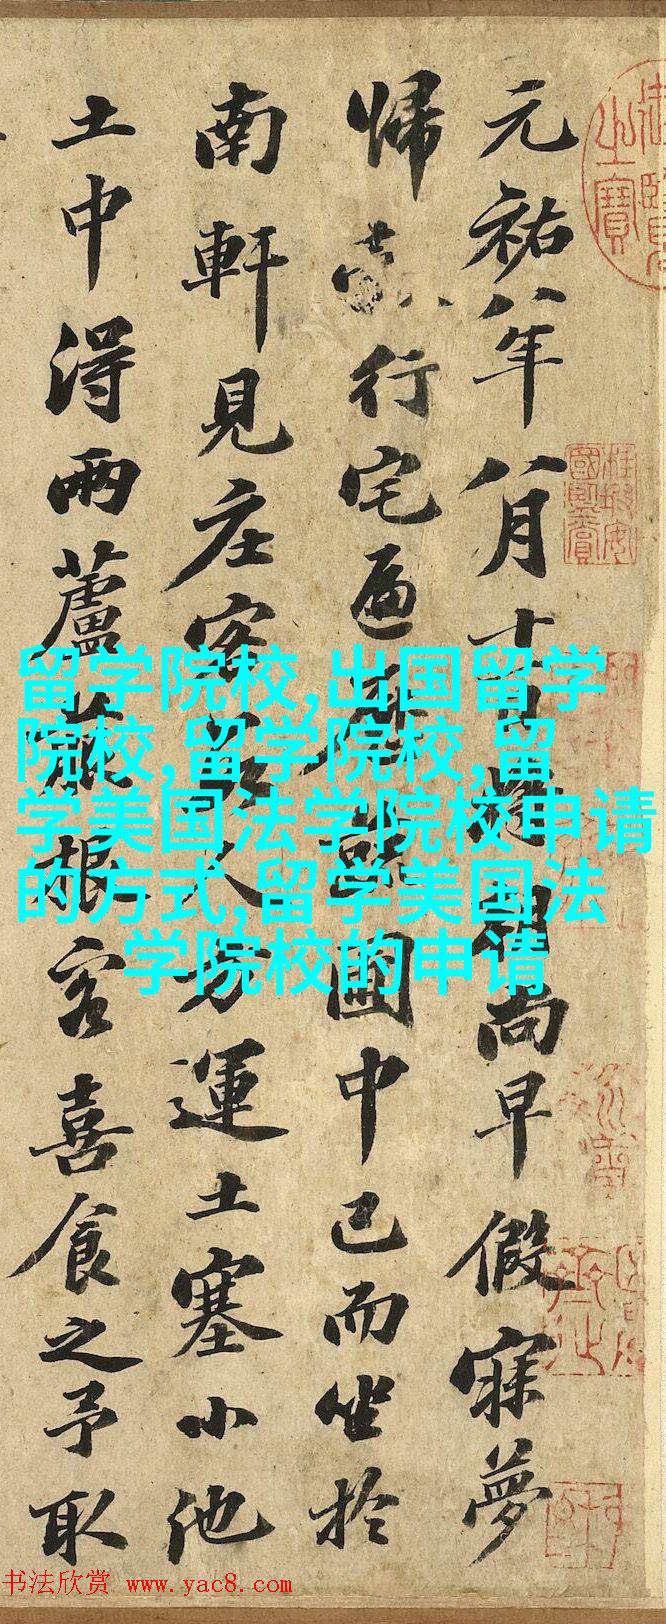 元祐八年八月十日朝尚早假寐夢
歸行宅遍歷蔬圃中已而坐於
南軒見庄客數人方運土塞小池
土中得兩蘆菔根客喜食之予取
留学院校,出国留学
院校,留学院校,留
学美国法学院校申请
的方式,留学美国法
学院校的申请
书法欣赏 www.yac8.com